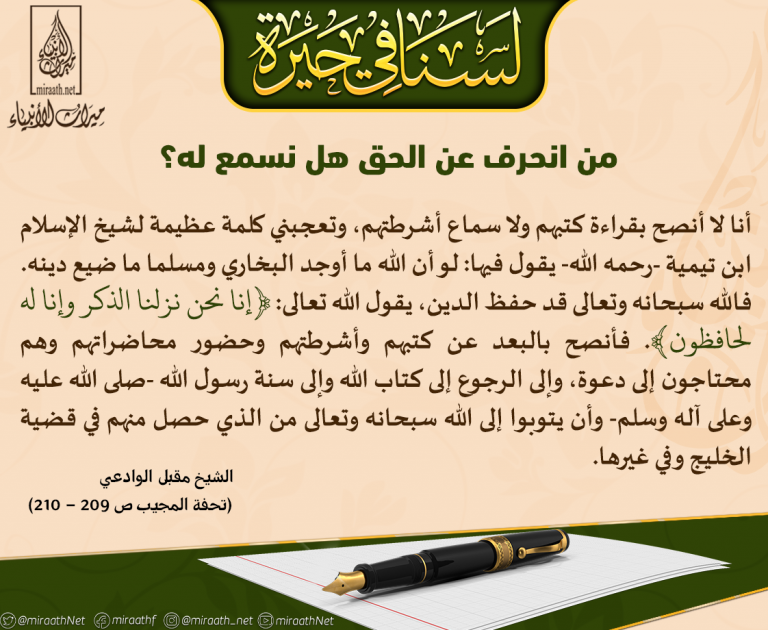 لسنا في حيرة
miraath.net
ميراث الأنبياء
من انحرف عن الحق هل نسمع له؟
أنا لا أنصح بقراءة كتبهم ولا سماع أشرطتهم، وتعجبني كلمة عظيمة لشيخ الإسلام
ابن تيمية -رحمه الله- يقول فيها: لو أن الله ما أوجد البخاري ومسلما ما ضيع دينه.
فالله سبحانه وتعالى قد حفظ الدين، يقول الله تعالى: ﴿إنا نحن نزلنا الذكر وإنا له
لحافظون﴾. فأنصح بالبعد عن كتبهم وأشرطتهم وحضور محاضراتهم وهم
محتاجون إلى دعوة، وإلى الرجوع إلى كتاب الله وإلى سنة رسول الله -صلى الله عليه
وعلى آله وسلم- وأن يتوبوا إلى الله سبحانه وتعالى من الذي حصل منهم في قضية
الخليج وفي غيرها.
الشيخ مقبل الوادعي
(تحفة المجيب ص 209 – 210)
@miraathNet miraathf @miraath_net miraathNet